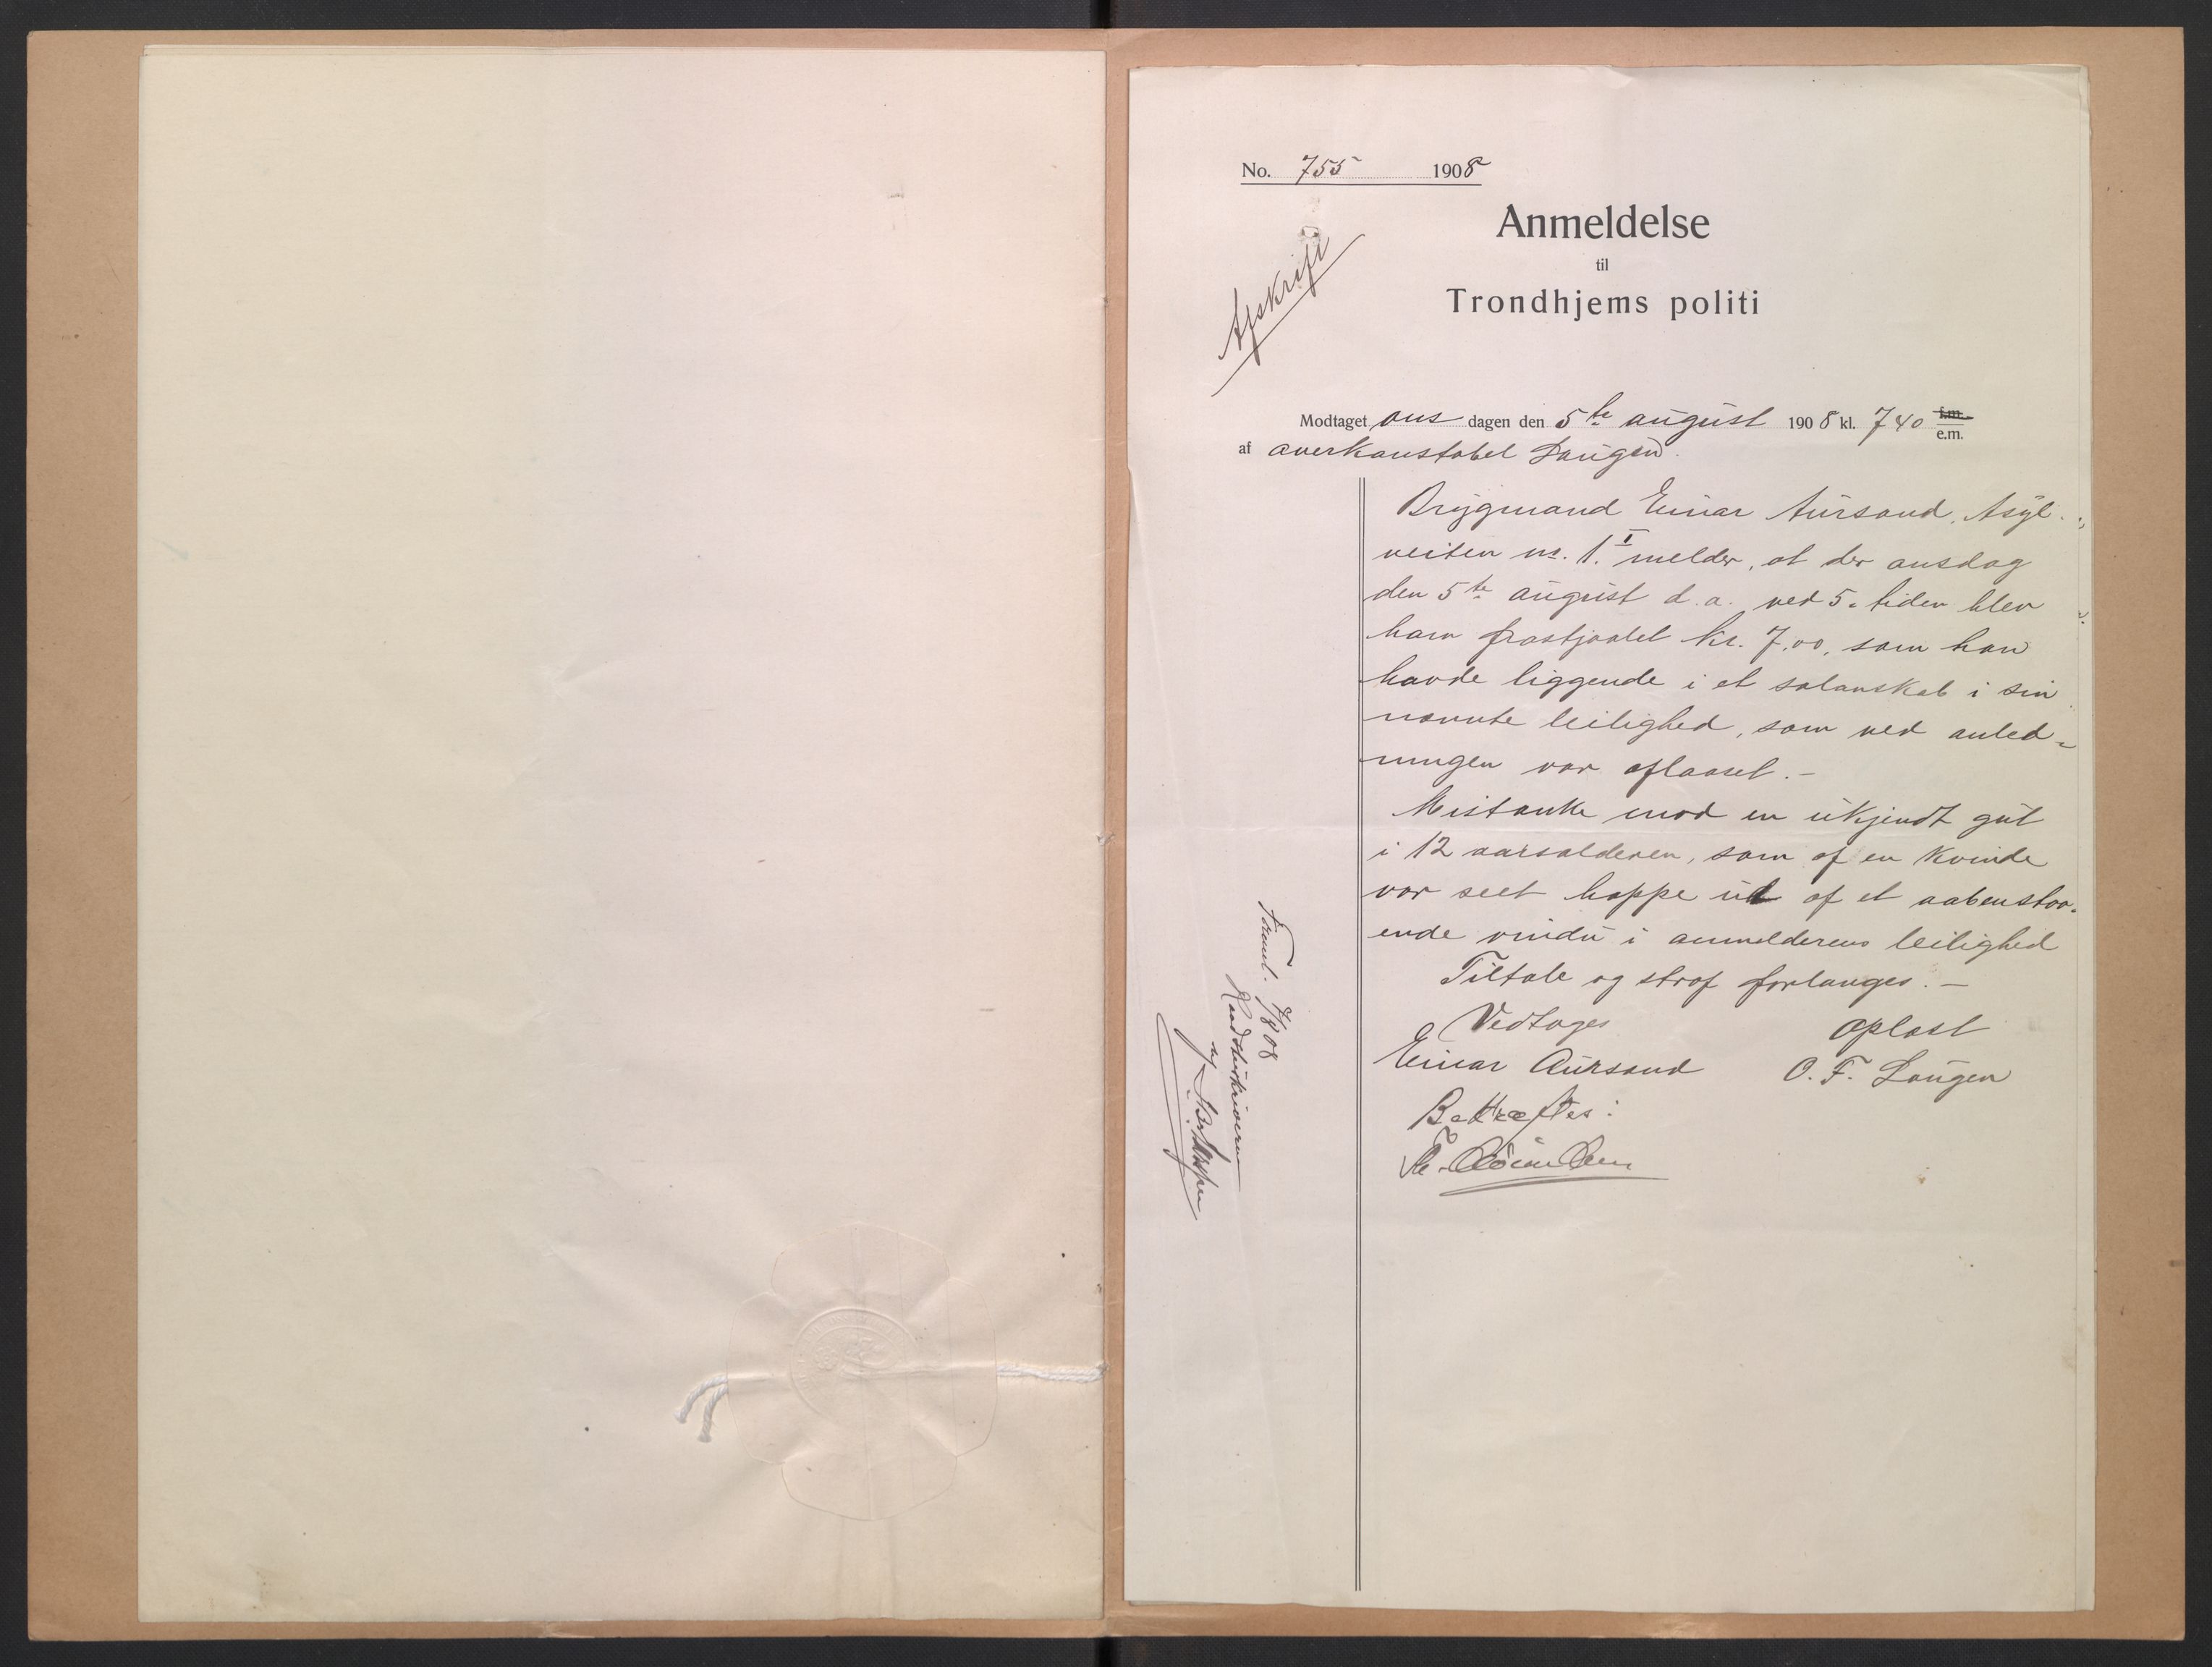 No. 755 1908
Afskrift
Anmeldelse
til
Trondhjems politi
Modtaget ons dagen den 5te august 1908 kl. 740 f.m.
e.m.
af overkonstabel Langen.
Brygmand Einar Aursand, Asyl-
veiten nr. 1. I melder, at der onsdag
den 5te august d. a. ved 5-tiden blev
ham frastjaalet kr. 7,00, som han
havde liggende i et salonskab i sin
nævnte leilighed, som ved anled-
ningen var aflaaset. -
Mistanke mod en ukjendt gut
i 12 aarsalderen, som af en kvinde
var seet hoppe ud af et aabenstaa-
ende vindu i anmelderens leilighed
Tiltale og straf forlanges. -
Vedtages
Oplæst
Einar Aursand
O. F. Langen
Bekræftes:
7/8 08